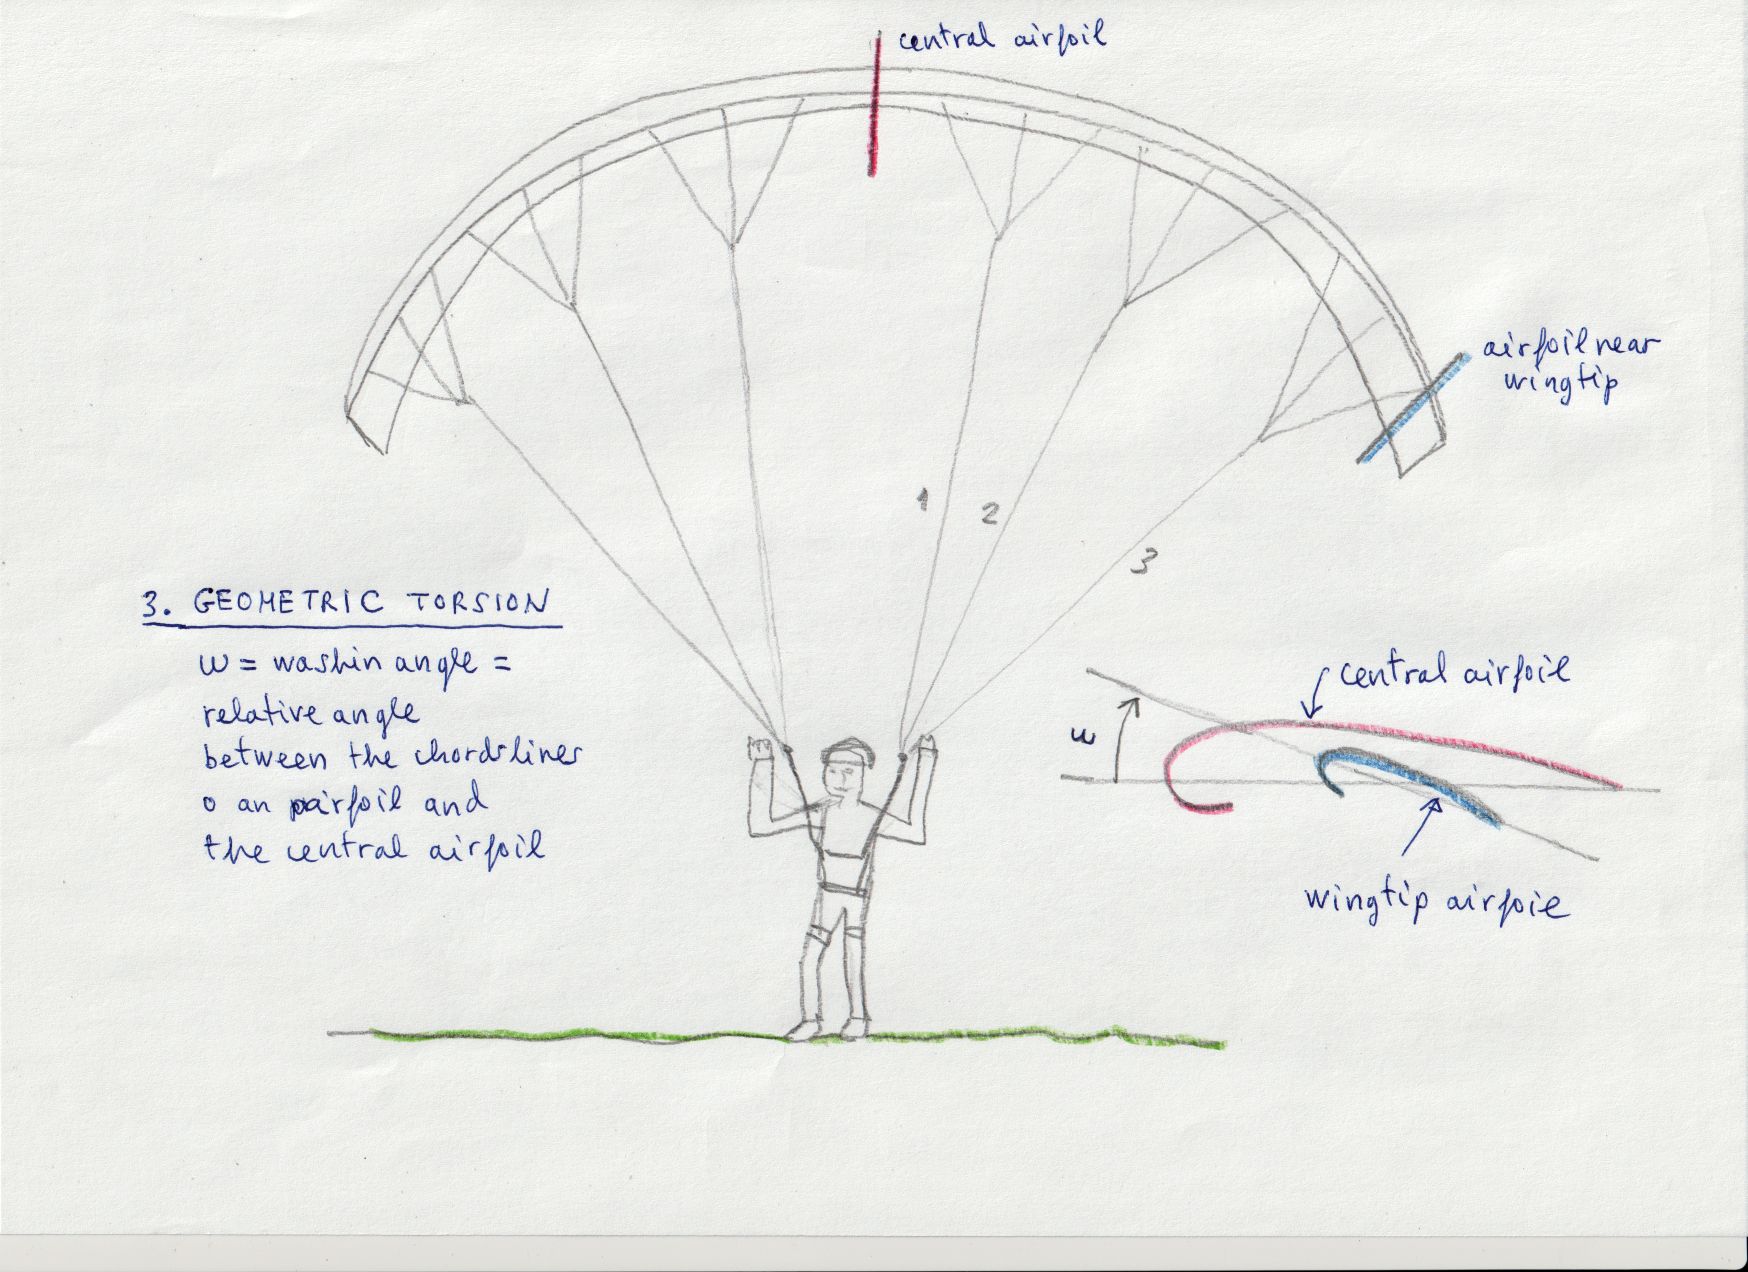 central airfoil
airfoil near
wingtip
1
2
3
3. GEOMETRIC TORSION
w = washin angle =
relative angle
between the chords lines
o an pairfoil and
the central airfoil
central airfoil
w
wingtip airfoil